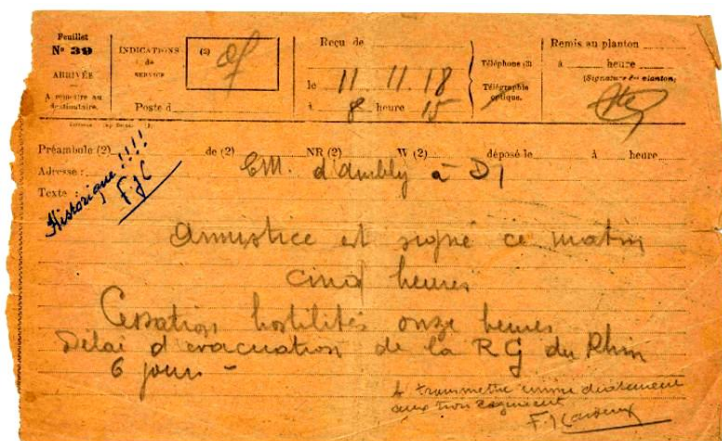 Feuillet
N° 39
ARRIVÉE
A remettre au
destinataire.
INDICATIONS
de
SERVICE
(2)
Poste d
Reçu de
le 11.11.18
à 8 heure 15
Téléphone (3)
Télégraphie
optique.
Remis au planton
à heure
(Signature du planton)
Préambule (2) de (2) NR (2) W (2) déposé le à heure
Adresse : EM. d'Ambly à DI
Texte :
Historique !!!!
FJC
Armistice est signé ce matin
cinq heures
Cessation hostilités onze heures
Délai d'évacuation de la RG du Rhin
6 jours -
à transmettre immédiatement
aux trois régiments